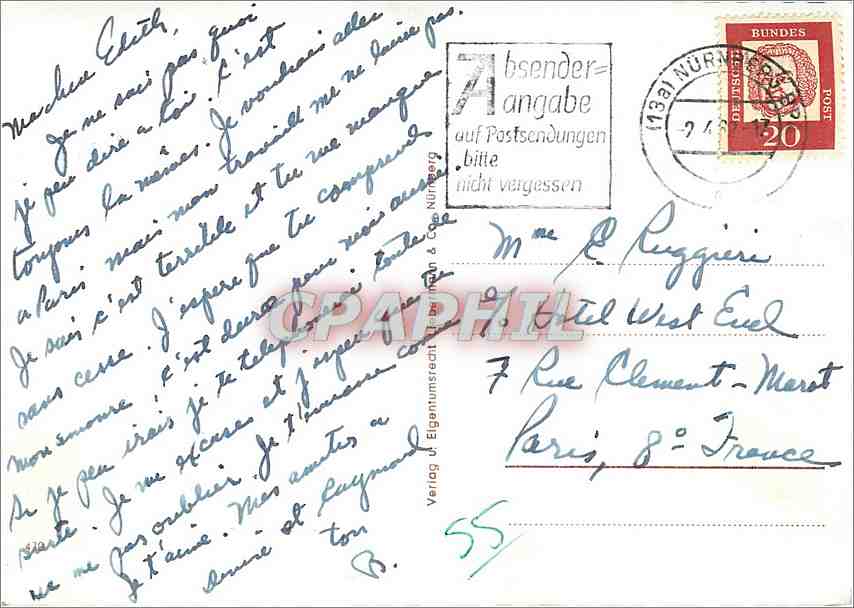 Ma chere Edith,
Je ne sais pas quoi
je peu dire a toi. C'est
toujours la mêmes. Je voudrais aller
a Paris mais mon travaill me ne laisse pas.
Je sais c'est terrible et tu me manque
sans cesse. J'espere que tu comprends
mon amoure. C'est dure pour moi aussi.
Si je peu irais je te telephonerai toute de
suite. Je me excuses et j'espere que tu
ne me pas oublier. Je t'embrasse comme
je t'aime. Mes amities a
Denise et Raymond
ton
B.
Absender=
angabe
auf Postsendungen
bitte
nicht vergessen
(13a) NÜRNBERG
-2.4.62-17
DEUTSCHE BUNDES POST
20
Mme E. Ruggieri
c/o Hotel West End
7 Rue Clement-Marot
Paris, 8e France
55
Verlag u. Eigentumsrecht & Co Nürnberg
CPAPHIL